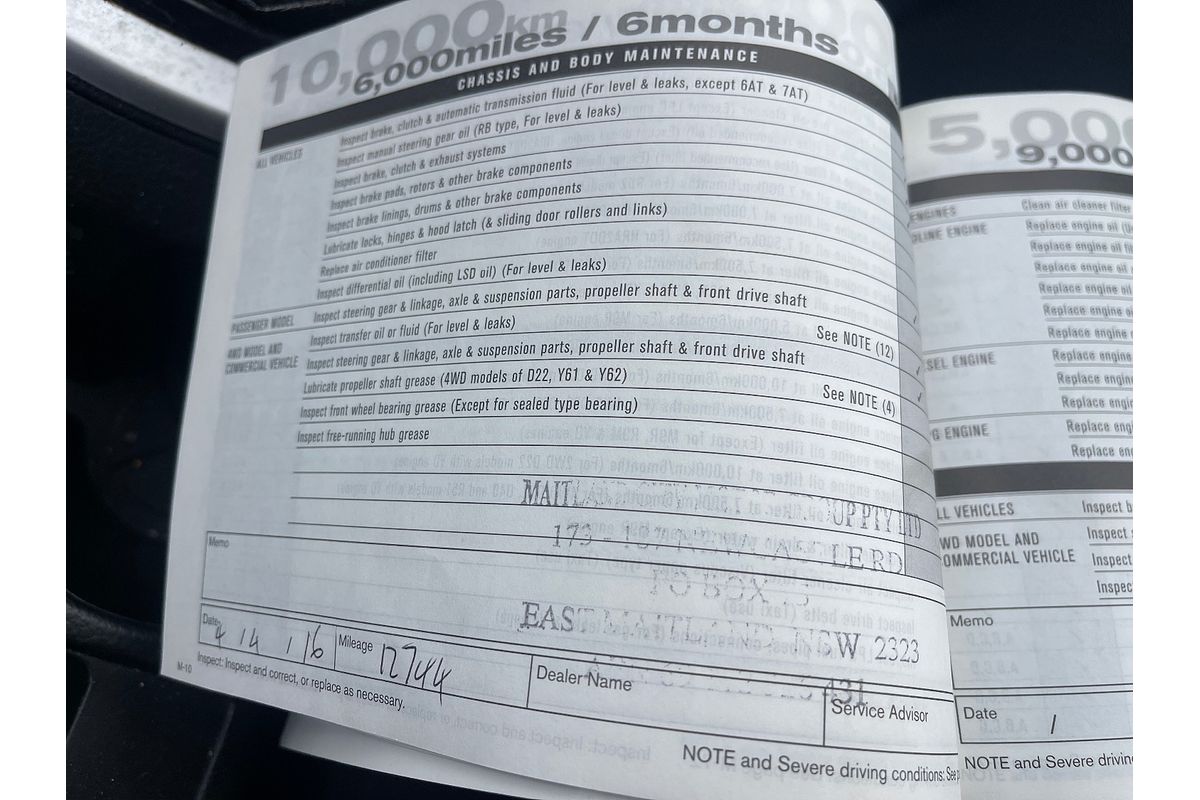 10,000km
6,000miles / 6months
CHASSIS AND BODY MAINTENANCE
ALL VEHICLES
Inspect brake, clutch & automatic transmission fluid (For level & leaks, except 6AT & 7AT)
Inspect manual steering gear oil (RB type, For level & leaks)
Inspect brake, clutch & exhaust systems
Inspect brake pads, rotors & other brake components
Inspect brake linings, drums & other brake components
Lubricate locks, hinges & hood latch (& sliding door rollers and links)
Replace air conditioner filter
Inspect differential oil (including LSD oil) (For level & leaks)
PASSENGER MODEL
Inspect steering gear & linkage, axle & suspension parts, propeller shaft & front drive shaft
See NOTE (12)
4WD MODEL AND
COMMERCIAL VEHICLE
Inspect transfer oil or fluid (For level & leaks)
Inspect steering gear & linkage, axle & suspension parts, propeller shaft & front drive shaft
See NOTE (4)
Lubricate propeller shaft grease (4WD models of D22, Y61 & Y62)
Inspect front wheel bearing grease (Except for sealed type bearing)
Inspect free-running hub grease
PTY LTD
173 - RD
PO BOX
EAST MAITLAND, NSW 2323
431
Memo
Date
4 / 4 / 16
Mileage
12744
Dealer Name
Service Advisor
M-10
Inspect: Inspect and correct, or replace as necessary.
NOTE and Severe driving conditions:
5,00
9,000
ENGINES
Clean air cleaner filter
LINE ENGINE
Replace engine oil
Replace engine oil
Replace engine oil
Replace engine oil
Replace engine oil
Replace engine
SEL ENGINE
Replace engine
Replace engine
Replace engine
G ENGINE
Replace engi
Replace en
LL VEHICLES
Inspect b
WD MODEL AND
OMMERCIAL VEHICLE
Inspect
Inspect
Inspec
Memo
Date
/
NOTE and Severe drivin